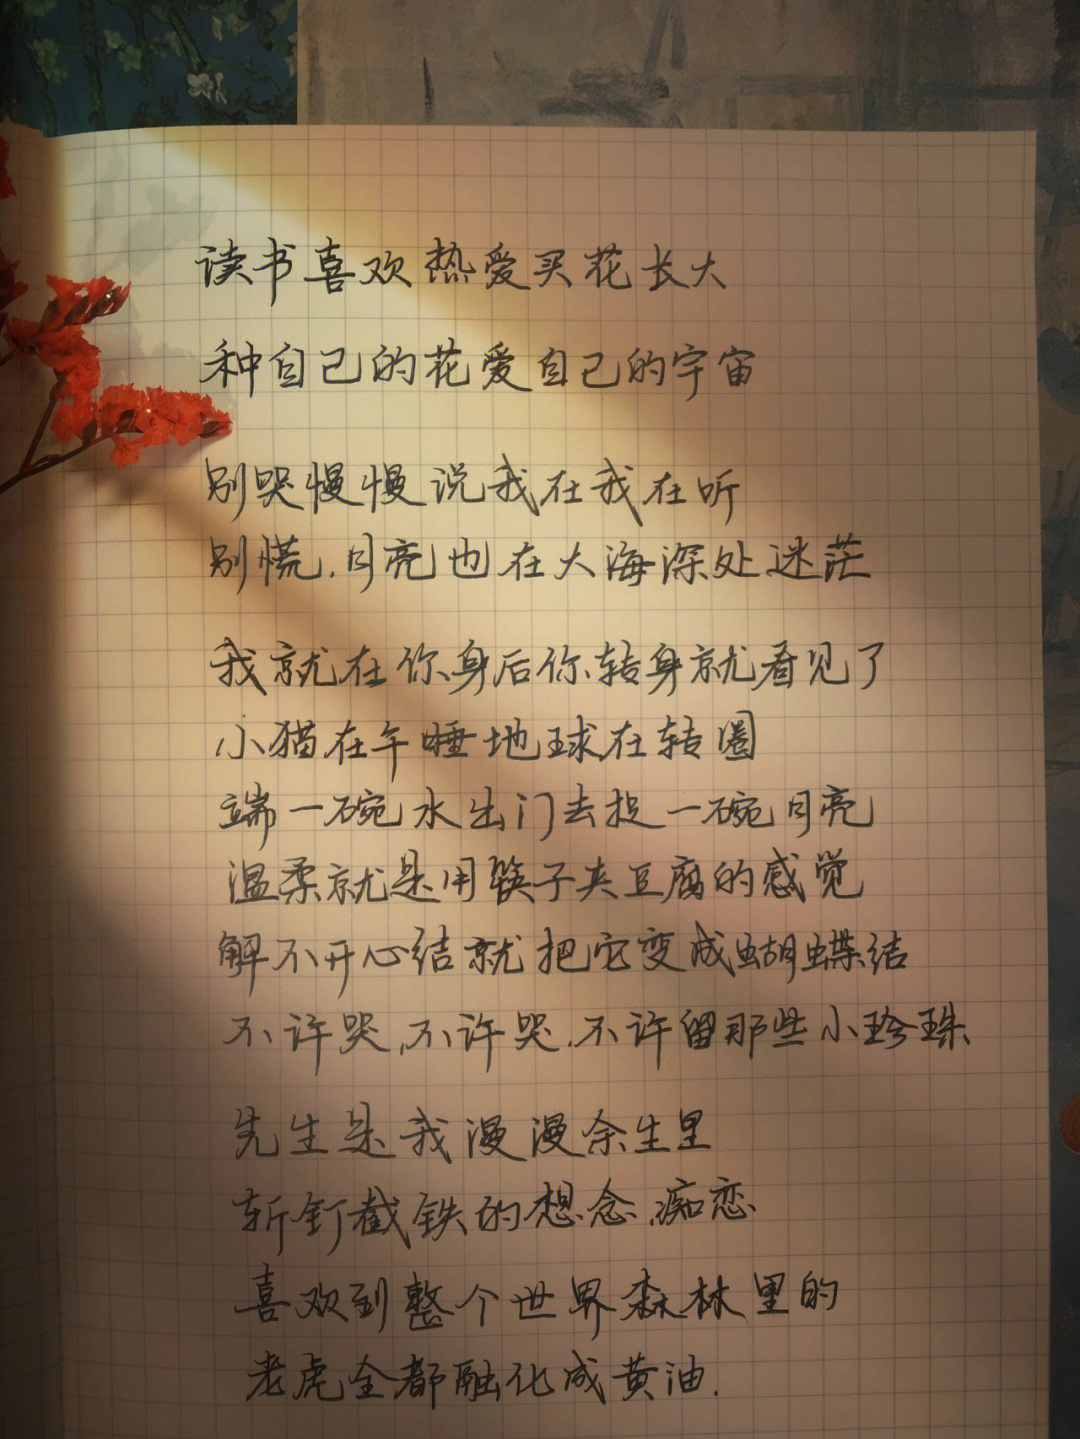 读书喜欢热爱买花长大
种自己的花爱自己的宇宙
别哭慢慢说我在我在听
别慌,月亮也在大海深处迷茫
我就在你身后你转身就看见了
小猫在午睡地球在转圈
端一碗水出门去捉一碗月亮
温柔就是用筷子夹豆腐的感觉
解不开心结就把它变成蝴蝶结
不许哭,不许哭,不许留那些小珍珠
先生是我漫漫余生里
斩钉截铁的想念,痴恋
喜欢到整个世界森林里的
老虎全都融化成黄油.